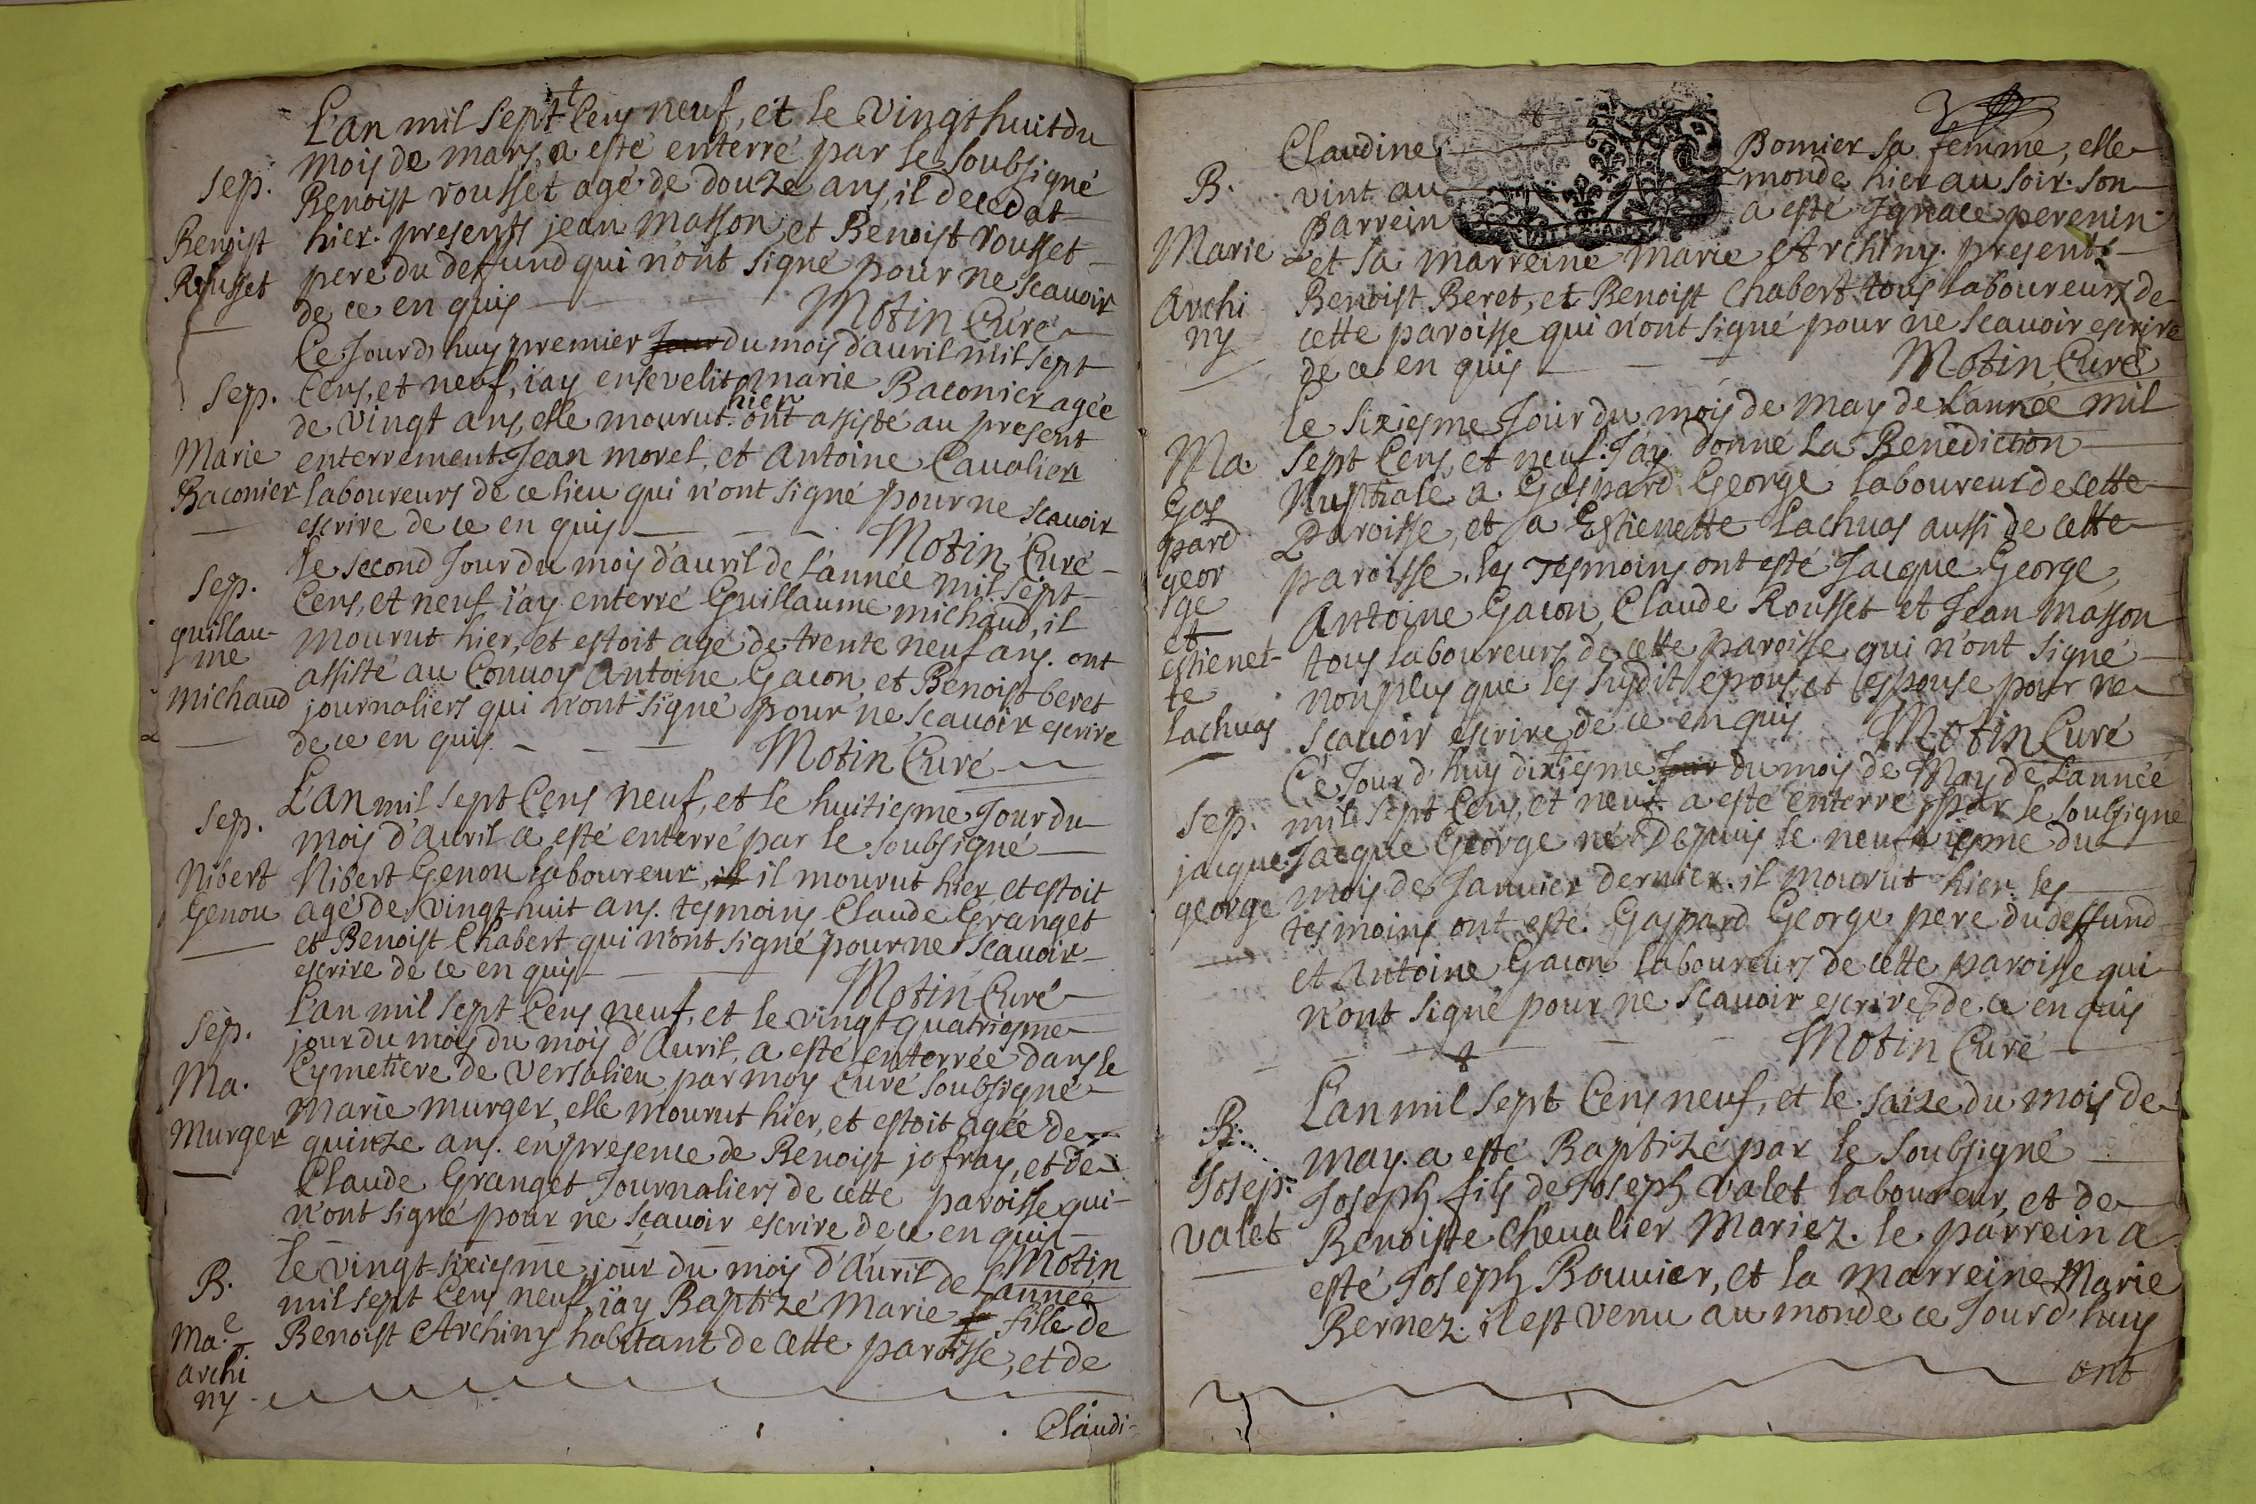 L'an mil sept Cens neuf, et le vingt huit du
mois de mars, a esté enterré par le soubsigné
Sep. Benoist rousset agé de douze ans, il deceda
Benoist hier. presents jean masson et Benoist rousset
Rousset pere du deffund qui n'ont signé pour ne scavoir
de ce en quis
Motin Curé
Ce Jourd'huy premier du mois d'auril mil sept
Sep. Cens, et neuf, i'ay enseveli marie Baconier agée
hier
de vingt ans, elle mourut ont assisté au present
Marie enterrement Jean morel, et Antoine Cavalier
Baconier laboureurs de ce lieu qui n'ont signé pour ne scavoir
escrire de ce en quis
Motin Curé
le second Jour du mois d'auril de l'année mil sept
Sep. Cens, et neuf i'ay enterré Guillaume michaud, il
guillau- mourut hier, et estoit agé de trente neuf ans. ont
me assisté au Convoy Antoine Gacon, et Benoist beret
michaud journaliers qui n'ont signé pour ne scavoir escrire
de ce en quis.
Motin Curé
L'an mil sept Cens neuf, et le huitiesme Jour du
Sep. mois d'Auril a esté enterré par le soubsigné
Nibert Nibert Genou laboureur, il il mourut hier, et estoit
Genou agé de vingt huit ans. tesmoins Claude Granget
et Benoist Chabert qui n'ont signé pour ne scavoir
escrire de ce en quis
Motin Curé
L'an mil sept Cens neuf, et le vingt quatriesme
Sep. jour du mois du mois d'Auril, a esté enterrée dans le
Ma. Cymetiere de versalieu par moy Curé soubsigné
Marie murger, elle mourut hier, et estoit agée de
Murger quinze ans. en presence de Benoist jofray, et de
Claude Granget Journaliers de cette paroisse qui
n'ont signé pour ne scavoir escrire de ce en quis
Motin
B. le vingt-sixiesme jour du mois d'Auril de l'année
mil sept Cens neuf, i'ay Baptizé Marie fille de
Mae. Benoist Archiny habitant de cette paroisse, et de
archi
ny
Claudi-
Claudine Bomier sa femme, elle
B. vint au monde hier au soir. son
Parrein a esté Ignace perenin
Marie et sa marreine marie Archiny. presents
Archi Benoist Beret, et Benoist Chabert tous laboureurs de
ny cette paroisse qui n'ont signé pour ne scavoir escrire
de ce en quis
Motin Curé
Le sixiesme Jour du mois de may de l'année mil
Ma. Sept Cens, et neuf. J'ay donné La Benediction
Gas Nuptiale a Gaspard George laboureur de cette
pard Paroisse, et a Estienette Lachuas aussi de cette
geor paroisse. les Tesmoins ont esté Jacque George,
ge Antoine Gacon, Claude Rousset et Jean Masson
et
estienet- tous laboureurs de cette paroisse qui n'ont signé
te non plus que les susdit epous, et espouse pour ne
Lachuas scavoir escrire de ce en quis
Motin Curé
Ce Jour d'huy dixiesme du mois de May de L'année
Sep. mil sept Cens, et neuf. a esté enterré par le soubsigné
jacque Jacque George né Depuis le neufviesme du
george mois de Janvier dernier. il mourut hier. les
tesmoins ont esté Gaspard George pere du deffund
et Antoine Gacon laboureurs de cette paroisse qui
n'ont signé pour ne scavoir escrire de ce en quis
Motin Curé
L'an mil sept Cens neuf, et le saize du mois de
B. may. a esté Baptizé par le soubsigné
Josep. Joseph fils de Joseph valet laboureur, et de
valet Benoiste Chevalier Mariez. le parrein a
esté Joseph Bouvier, et la marreine Marie
Bernez. il est venu au monde ce Jourd'huy
ont